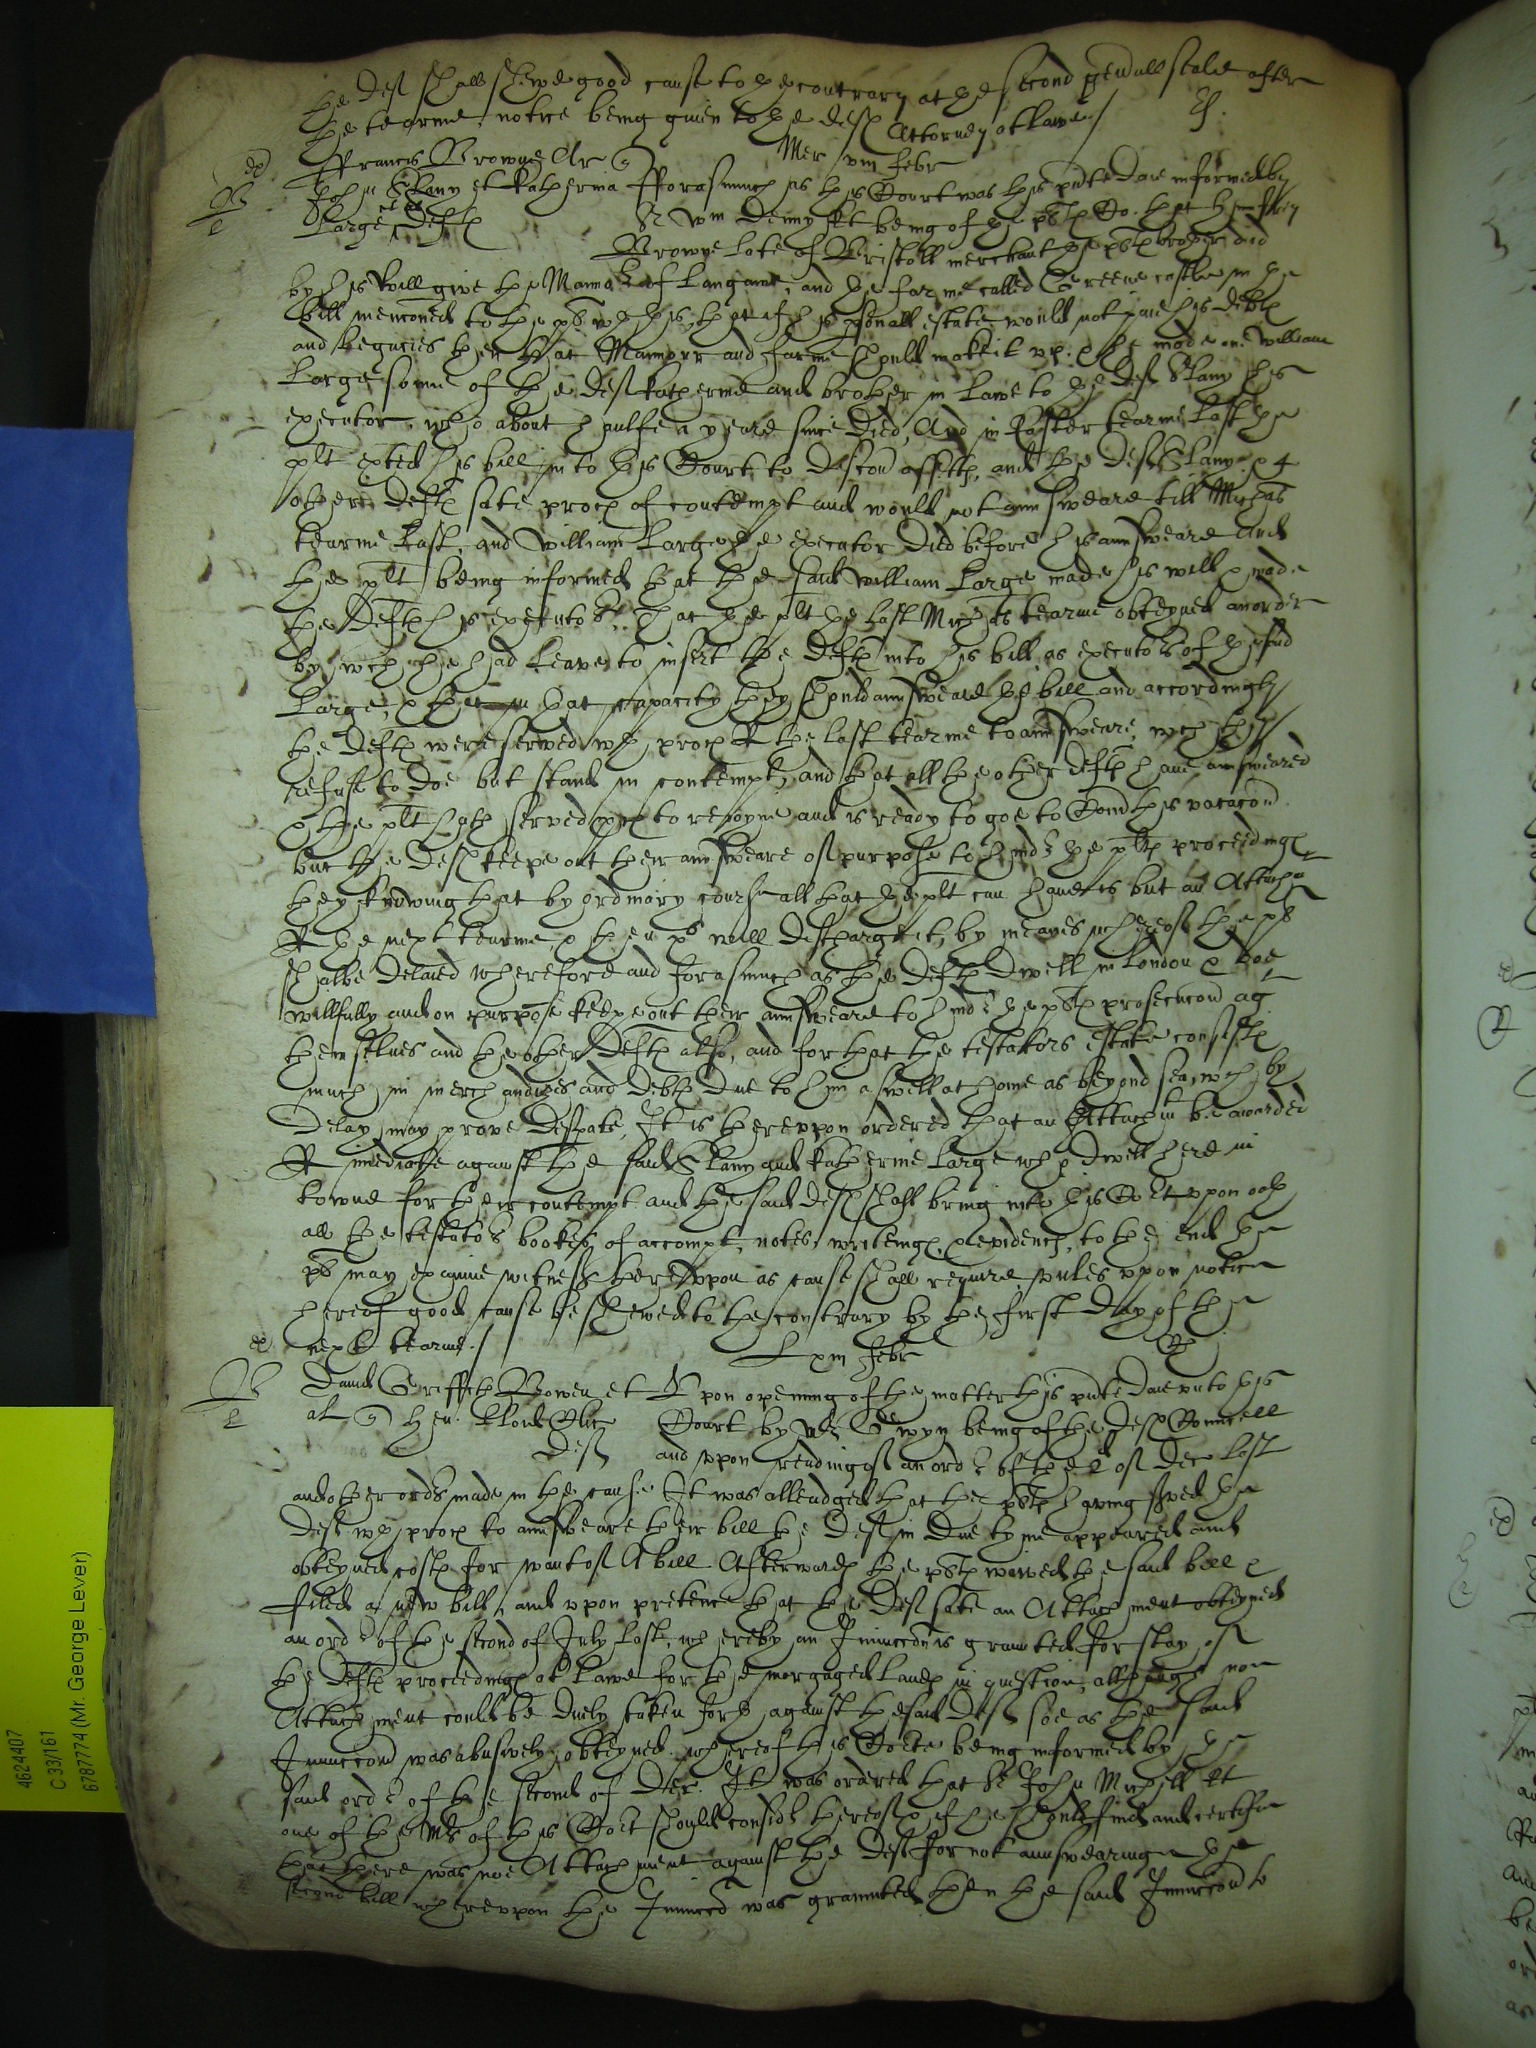 the Deft shall shewe good cause to the contrary at the second genall seale after
the tearme, notice being given to the defts Attorney at lawe /
Mer viii Febr
Francis Browne Ar
John Slany et Katherina Large Defts
Forasmuch as this Court was this pnte daie informed by
Sr Wm Denny kt being of the plts Co. that Humfrey
Browne late of Bristoll merchant the plts brother did
by his will give the Manno of Langant, and the farme called Greene castle in the
bill menconed to the plt wth this, that if his psonall estate would not paie his debts
and Legacies then that Mannor and farme should make it up, & he made one William
Large sonne of the deft Katherine and brother in Lawe to the deft Slany his
executor, who about halfe a yeare since died, And in Easter tearme last the
plt exted his bill into this Court to discou assetts, and the deft Slany &
other defts sate proces of contempt and would not aunsweare till Michas
tearme Last, and William Large the executor died before his aunsweare And
the plt being informed that the said William Large made his will & made
the Defts his executors. That the plt the last Michas tearme obteyned an order
by wch he had leave to insert the defts into his bill as executors of the said
Large, & that in that capacity they should aunsweare the bill and accordingly
the defts were served wth proces R the last tearme to aunsweare, wch they
refuse to doe but stand in contempt, and that all the other defts have aunsweared
& the plt hath served proces to rejoyne and is ready to goe to Comd this vacacon
but the defts keepe out their aunsweare of purpose to hinder the plts proceedings
they knowing that by ordinary course all that the plt can have is but an Attachmt
R the next tearme & then will discharge it, by meanes whereof the plt
shalbe delaied wherefore and forasmuch as the defts dwell in London & doe
willfully and on purpose keepe out their aunsweare to hinder the plts prosecucon agt
themselves and the other Defts also, and for that the testators estate consists
much in merchandizes and debts due to him aswell at home as beyond sea, wch by
delay may prove desperate, It is thereupon ordered that an Attachmt be awarded
R imediate against the said Slany and Katherine Large who dwell here in
towne for their contempt and the said defts shall bring into this Court upon oath
all the testators bookes of accompt, notes, writeings & evidences, to the end the
plt may examine witnesses thereupon as cause shall require, unles upon notice
hereof good cause be shewed to the contrary by the first day of the
next tearme /
L xiii Febr
David Griffith Bowen et
al Hen: Lloid
Deft
Upon opening of the matter this pnte daie unto this
Court by Mr Gwyn being of the defts Councell
and upon reading of an order of the 2 of Dec last
and other orders made in the cause It was alleadged that the plts having served the
deft wth proces to aunsweare their bill the Deft in due tyme appeared and
obteyned costs for want of A bill Afterwards the plts waived the said bill &
filed a new bill, and upon pretence that the Deft sate an Attachment obteyned
an order of the second of July last, whereby an Iniunccon is graunted for stay of
the defts proceedings at Lawe for the morgaged lands in question, although noe
Attachment could be duely taken forth against the said Deft soe as the said
Iniunccon was abusively obteyned. whereof this Courte being informed by the
said order of the second of Dec. It was ordered that Sr John Michell kt
one of the Mrs of this Court should consider thereof & if he should find and certifie
that there was noe Attachment against the deft for not aunswearinge the
second bill whereupon the Iniunccon was graunted then the said Iniunccon to
4624407
C 33/161
6787774 (Mr. George Lever)